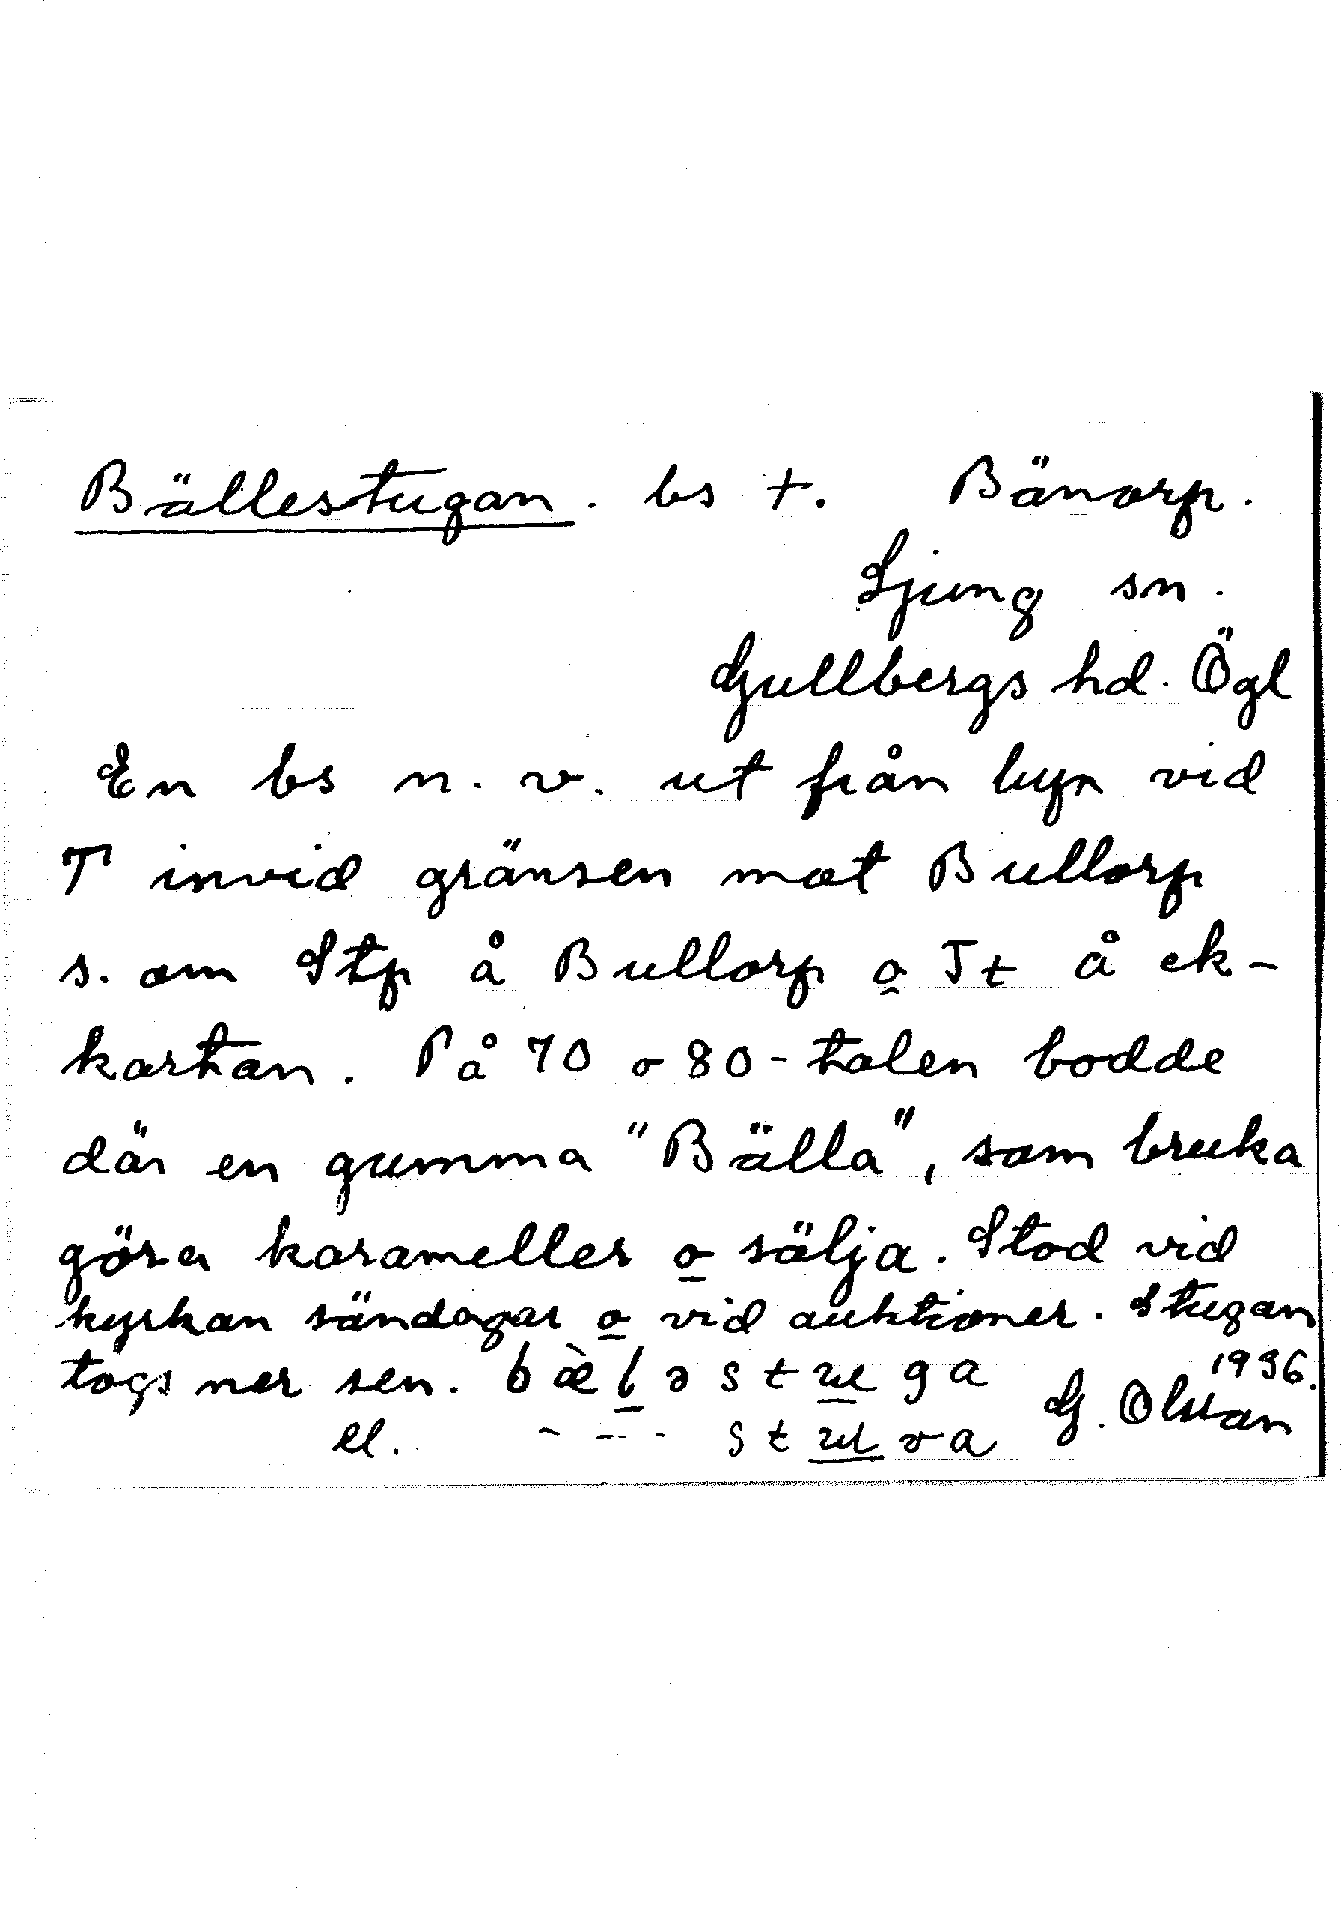 Bällestugan. bs †. Bänorp.
Ljung sn.
Gullbergs hd. Ögl
En bs n. v. ut från byn vid
T invid gränsen mot Bullorp
s. om Stp å Bullorp o Jt å ek-
kartan. På 70 o 80-talen bodde
där en gumma "Bälla", som bruka
göra karameller o sälja. Stod vid
kyrkan söndagar o vid auktioner. Stugan
togs ner sen. bæ̀ləstuga 1936.
el. - --- stuva G. Olsson